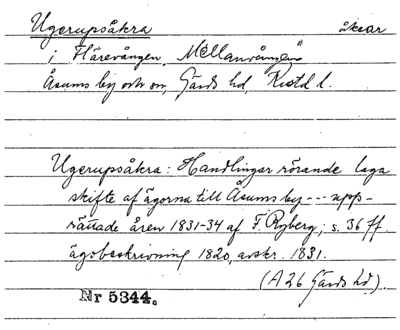 Ugerupsåkra åkrar
i Härevången, Mellanvången
Åsums by och sn, Gärds hd, Kristd l.
Ugerupsåkra: Handlingar rörande laga
skifte af ägorna till Åsums by --- upp-
rättade åren 1831-34 af F. Ryberg; s. 36 ff.
ägobeskrivning 1820, avskr. 1831.
(A 26 Gärds hd).
Nr 5344.